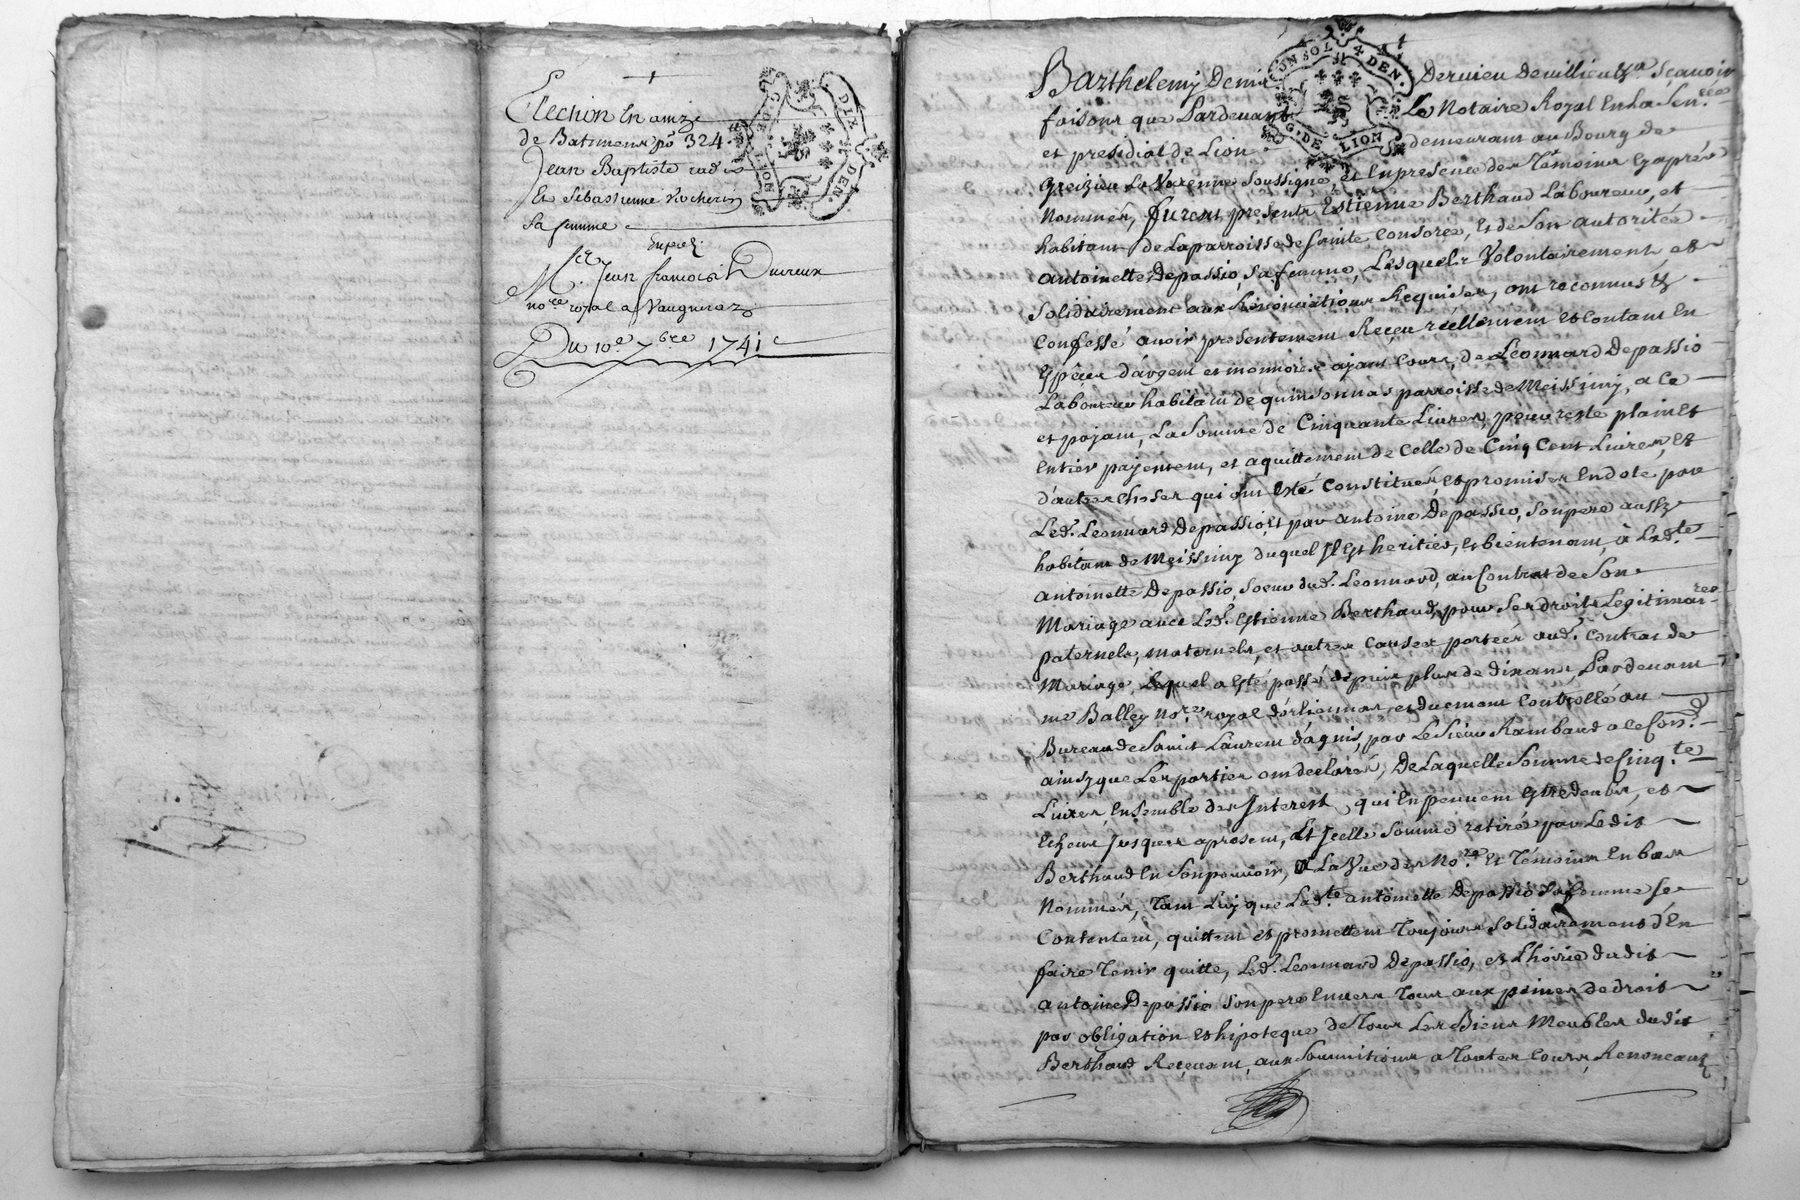 Election En amiz
de Batimens po 324
Jean Baptiste
Et Sebastienne
Sa femme
Mre Jean francois Duvieux
nore royal a Vaugneraz
Du 10e 7bre 1741
DIX DEN.
G. DE LION
UN SOL 4 DEN.
G. DE LION
Barthelemy Denis Dervieu devillieu Scavoir
faisons que Pardevant Le Notaire Royal En La Sen.cee
et presidial de Lion demeurant au Bourg de
Greizieu La Varenne Soussigné, et En presence des Témoins Cy aprés
Nommés, furent presents Estienne Berthaud Laboureur, et
habitant de La parroisse de Sainte Consorce, Et de Son autorité
antoinette Depassio, Sa femme, Lesquels Volontairement et
Solidairement aux Rénonciations Requises, ont reconnus &
Confessé avoir presentement Reçeu réellement et Contant En
Espéces d'argent et monnoie ayant Cours, de Léonnard Depassio
Laboureur habitant de quinsonnas parroisse de Meissimy, a Ce
et payant, La Somme de Cinquante Livres, pour reste plain Et
Entier payement, et aquittement de Celle de Cinq Cent Livres, Et
d'autres Choses qui ont Esté Constitués, et promises En dote par
Led. Leonnard Depassio, Et par antoine Depassio, Son pere aussy
habitant de Meissimy duquel Il Est heritier, Et bientenant, à Lad.te
antoinette Depassio, Soeur dud. Leonnard, au Contrat de Son
Mariage avec Led. Estienne Berthaud, pour Ses droits Legitimaires
paternels, maternels, et autres Causes portées aud. Contrat de
Mariage, Lequel a Esté passé depuis plus de dix ans, Pardevant
me Balley No.re royal d'orlienas, et duement Controllé au
Bureau de Saint Laurent d'agnis, par Le Sieur Rambaud a ce Con.
ainsy que Les parties ont declarés, De Laquelle Somme de Cinq.te
Livres, Ensemble des Interest, qui En peuvent Estre deubs, et
Echeus Jusques a present, Et Icelle Somme retirée par Ledit
Berthaud En Son pouvoir, a La Vue des No.re Et Témoins En bas
Nommés, Tant Luy que Lad.te antoinette Depassio Sa femme Se
Contentent, quittent et promettent Toujours Solidairement d'En
faire Tenir quitte, Led. Leonnard Depassio, et L'hoirie dudit
antoine Depassio Son pere Envers Tous aux peines de droit
par obligation et hipoteque de Tous Les Biens Meubles dudit
Berthaud Reçevant, aux Soumitions a Toutes Cours, Renonçant